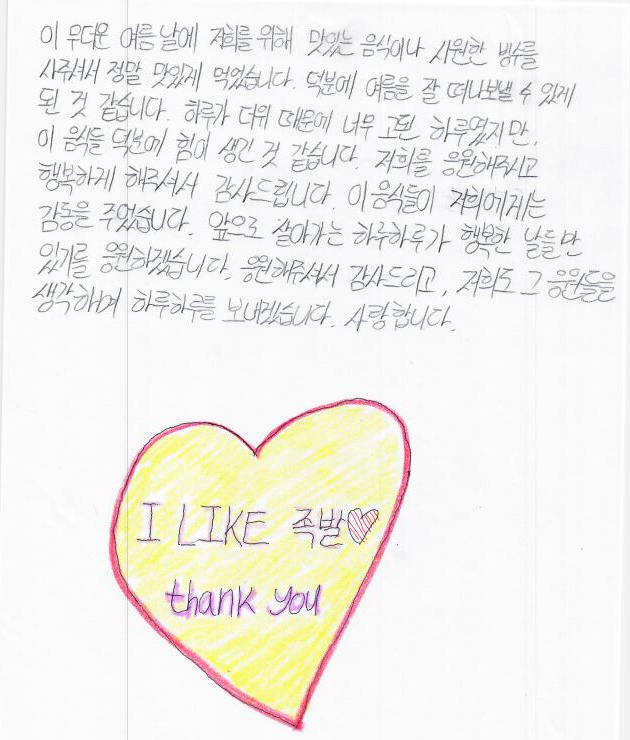 이 무더운 여름 날에 저희를 위해 맛있는 음식이나 시원한 빙수를
사주셔서 정말 맛있게 먹었습니다. 덕분에 여름을 잘 떠나보낼 수 있게
된 것 같습니다. 하루가 더위 때문에 너무 고된 하루였지만,
이 음식들 덕분에 힘이 생긴 것 같습니다. 저희를 응원해주시고
행복하게 해주셔서 감사드립니다. 이 음식들이 저희에게는
감동을 주었습니다. 앞으로 살아가는 하루하루가 행복한 날들만
있기를 응원하겠습니다. 응원해주셔서 감사드리고, 저희도 그 응원들을
생각하며 하루하루를 보내겠습니다. 사랑합니다.
I LIKE 족발
thank you